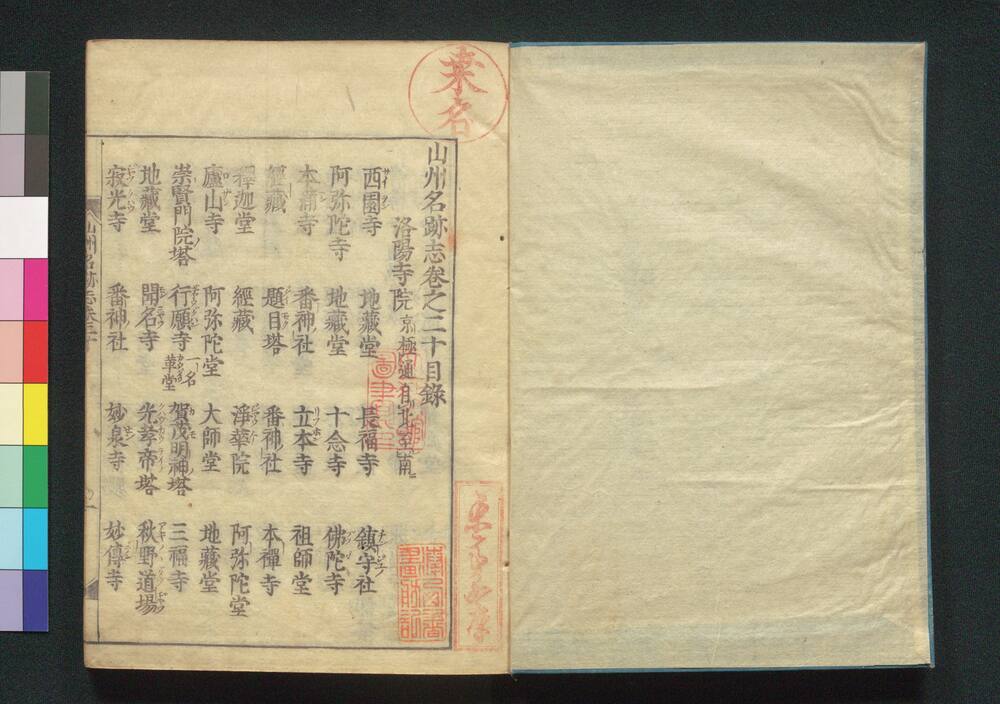 山州名跡志卷之二十目錄
洛陽寺院 京極通自北至南
西園寺 地藏堂 長福寺 鎮守社
阿弥陀寺 地藏堂 十念寺 佛陀寺
本満寺 番神社 立本寺 祖師堂
經藏 題目塔 番神社 本禪寺
釋迦堂 經藏 淨華院 阿弥陀堂
廬山寺 阿弥陀堂 大師堂 地藏堂
崇賢門院塔 行願寺 一名革堂 賀茂明神塔 三福寺
地藏堂 開名寺 光孝帝塔 秋野道場
寂光寺 番神社 妙泉寺 妙傳寺
山州名跡志卷二十